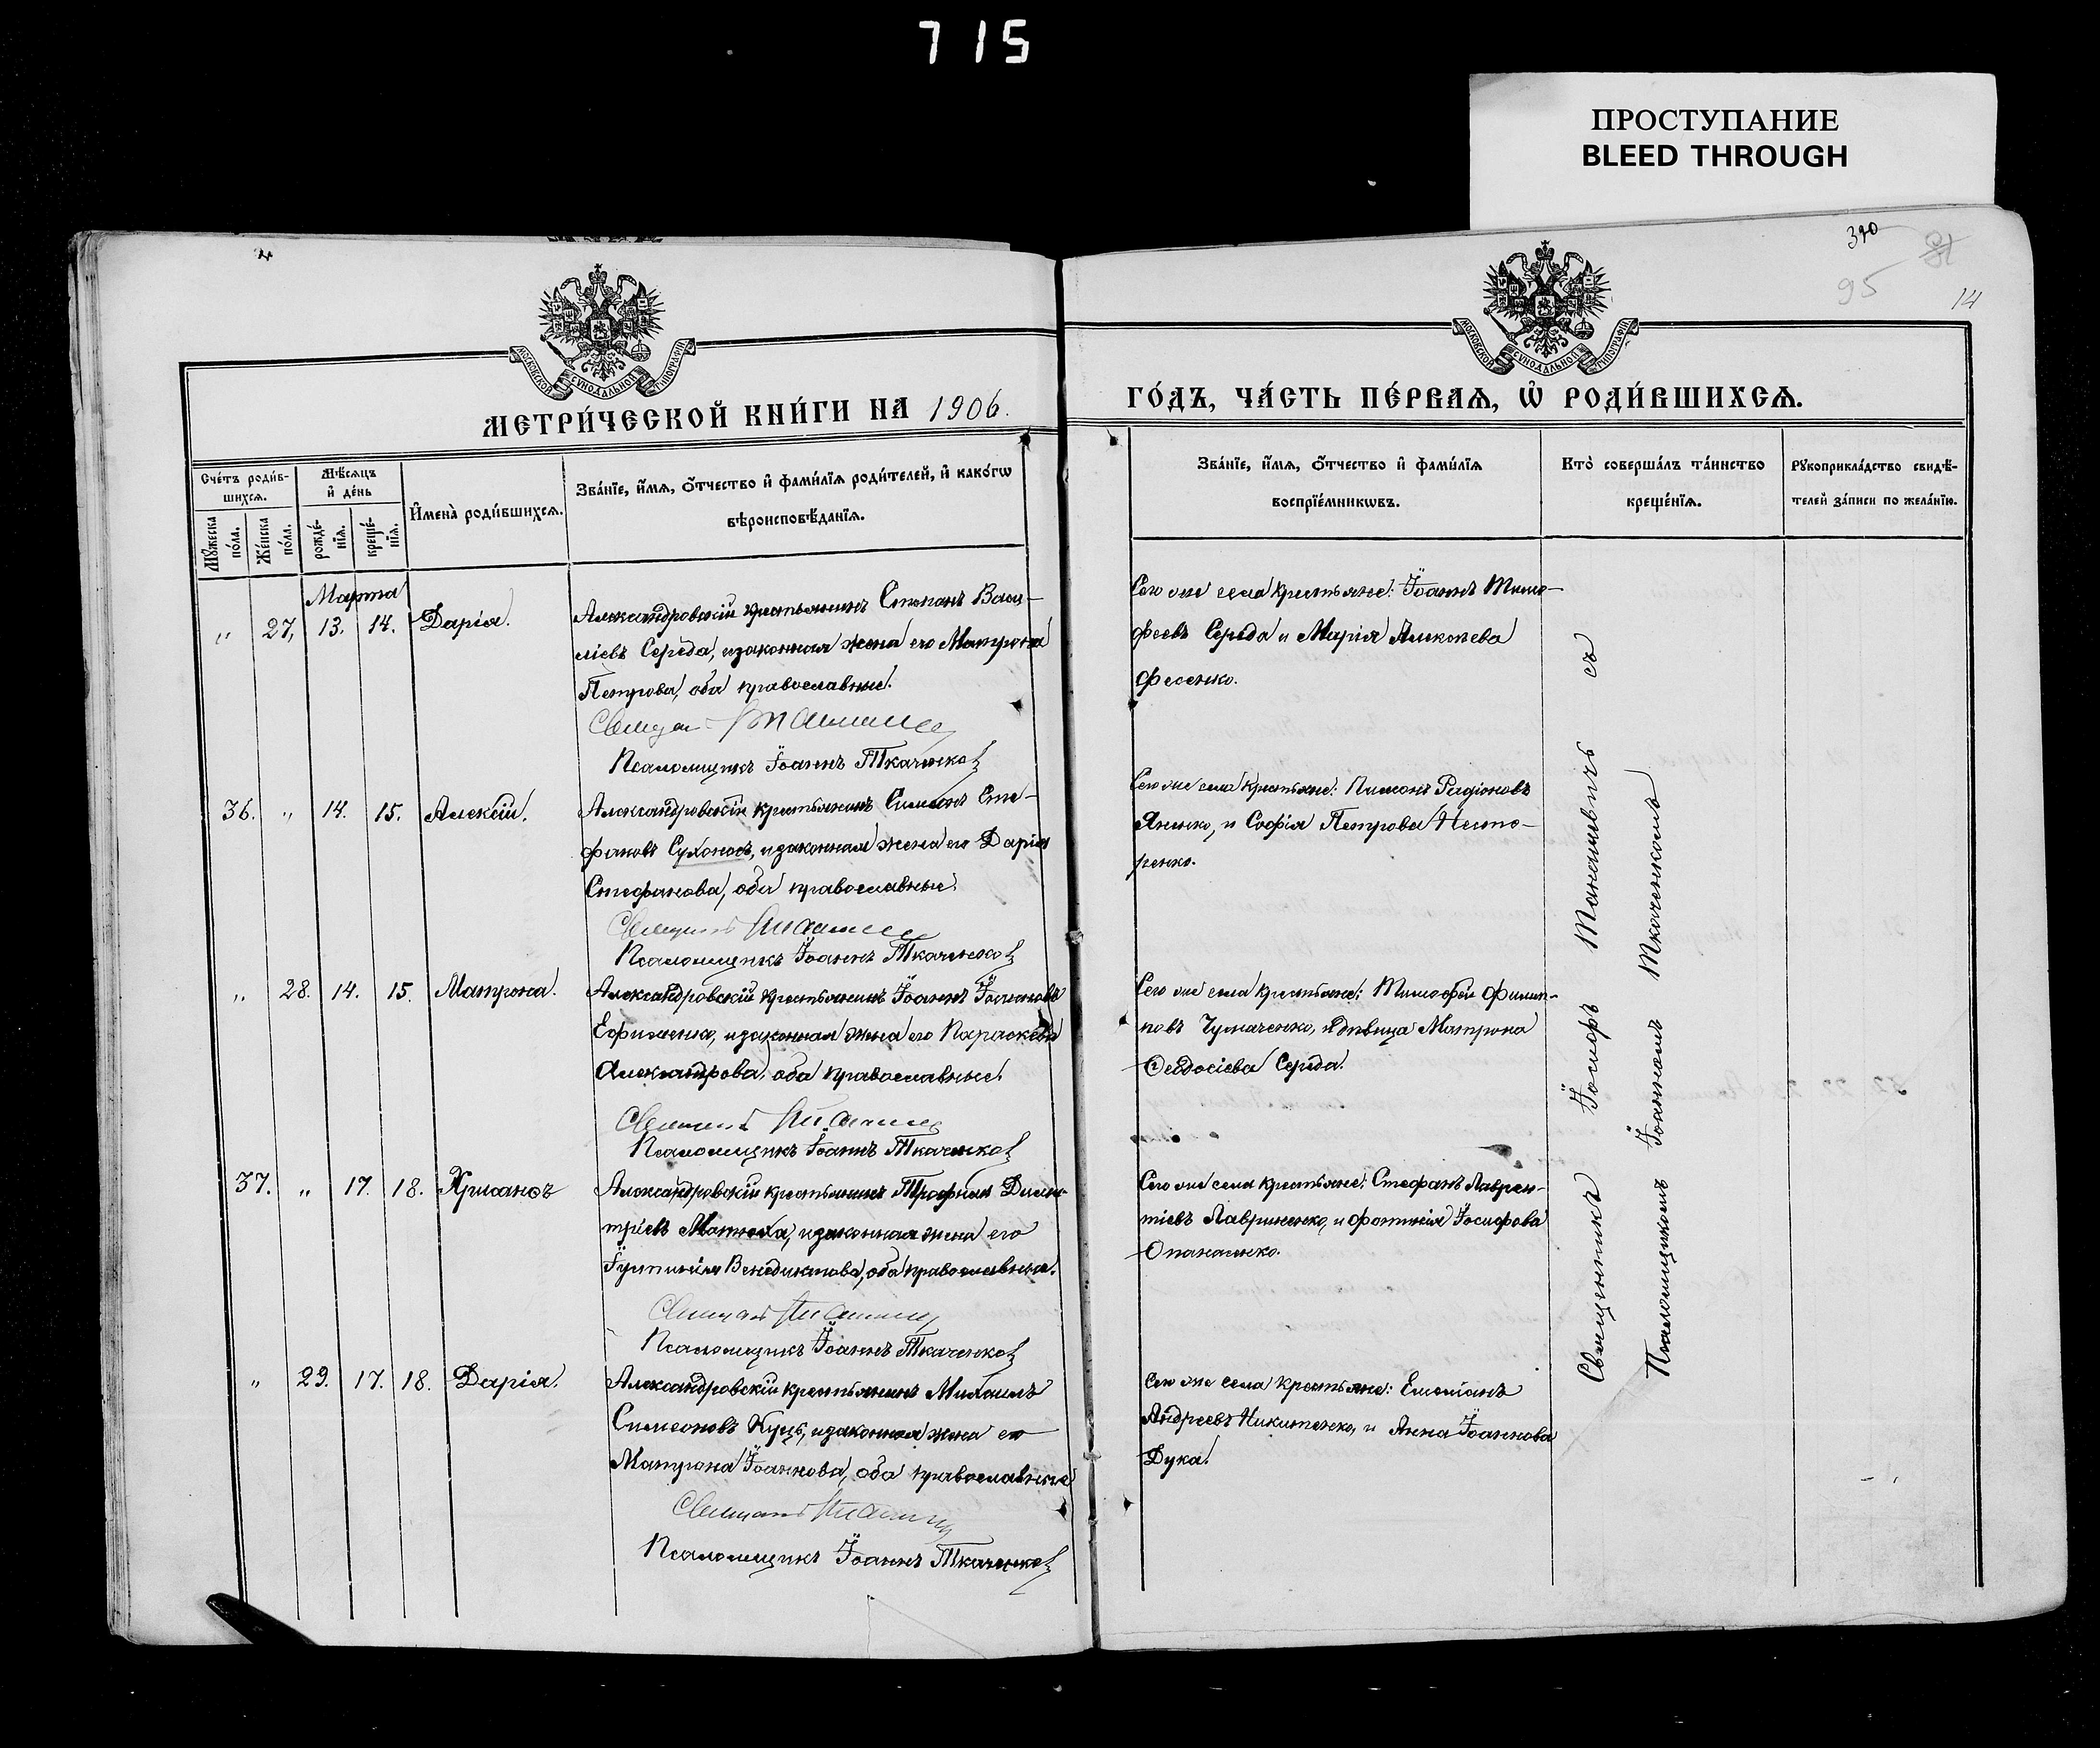 715
ПРОСТУПАНИЕ
BLEED THROUGH
390
95
14
МОСКОВСКОЙ СѴНОДАЛЬНОЙ ТИПОГРАФІИ
МОСКОВСКОЙ СѴНОДАЛЬНОЙ ТИПОГРАФІИ
МЕТРИ́ЧЕСКОЙ КНИ́ГИ НА 1906.
ГО́ДЪ, ЧА́СТЬ ПЕ́РВАЯ, Ѡ҆ РОДИ́ВШИХСЯ.
Сче́тъ роди́в-
шихся.
Мꙋ́жеска по́ла.
Же́нска по́ла.
Мѣ́сяцъ
и҆ де́нь
рожде́-
нїя.
креще́-
нїя.
И҆мена̀ роди́вшихся.
Зва́нїе, и҆́мя, ѻ҆́тчество и҆ фами́лїя роди́телей, и҆ како́гѡ
вѣроисповѣ́данїя.
Зва́нїе, и҆́мя, ѻ҆́тчество и҆ фами́лїя
воспрїе́мникѡвъ.
Кто̀ соверша́лъ та́инство
креще́нїя.
Рꙋкоприкла́дство свидѣ́-
телей за́писи по жела́нїю.
Марта
„ 27, 13. 14. Дарія.
Александровскій крестьянинъ Степанъ Васи-
ліевъ Середа, и законная жена его Матрона
Петрова, оба православные.
Псаломщикъ Іоаннъ Ткаченко
Сего же села крестьяне: Іоаннъ Тимо-
феевъ Середа и Марія Алексѣева
Фесенко.
36. „ 14. 15. Алексій.
Александровскій крестьянинъ Симеонъ Сте-
фановъ Сухоносъ, и законная жена его Дарія
Стефанова, оба православные.
Псаломщикъ Іоаннъ Ткаченко
Сего же села крестьяне: Пимонъ Родіоновъ
Яненко, и Софія Петрова Несте-
ренко.
„ 28. 14. 15. Матрона.
Александровскій крестьянинъ Іоаннъ Іоанновъ
Ефименко, и законная жена его Параскева
Александрова, оба православные.
Псаломщикъ Іоаннъ Ткаченко
Сего же села крестьяне: Тимофей Филип-
повъ Чумаченко, и дѣвица Матрона
Ѳеодосіева Середа.
37. „ 17. 18. Хрисанѳъ
Александровскій крестьянинъ Трофимъ Дими-
тріевъ Матюха, и законная жена его
Іустинія Венедиктова, оба православные.
Псаломщикъ Іоаннъ Ткаченко
Сего же села крестьяне: Стефанъ Лаврен-
тіевъ Лавриненко, и Фотинія Іосифова
Опанасенко.
„ 29. 17. 18. Дарія.
Александровскій крестьянинъ Михаилъ
Симеоновъ Куць, и законная жена его
Матрона Іоаннова, оба православные
Псаломщикъ Іоаннъ Ткаченко
Сего же села крестьяне: Емеліанъ
Андреевъ Никитенко, и Анна Іоаннова
Дука.
Священникъ Іосифъ съ
Псаломщикомъ Іоанномъ Ткаченкомъ